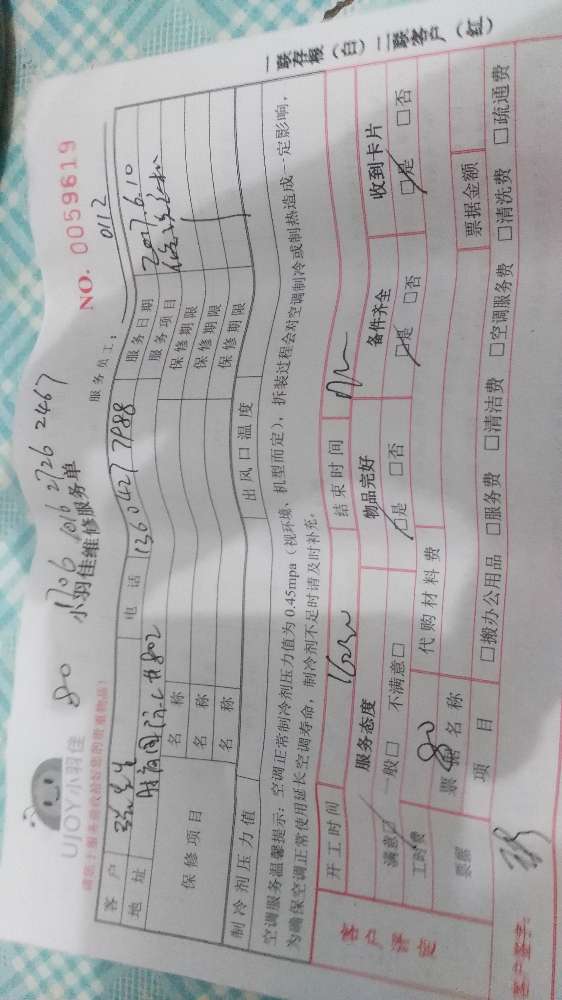 一联存根（白）二联客户（红）
UJOY小羽佳
80 5706 1016 2726 2467
小羽佳维修服务单
NO. 0059619
服务员工： 0112
客户 电话 136 0427 7988 服务日期 2017.6.10
地址 802 服务项目
保修项目 名称 保修期限
名称 保修期限
名称 保修期限
制冷剂压力值 出风口温度
空调服务温馨提示：空调正常制冷剂压力值为0.45mpa（视环境、机型而定），拆装过程会对空调制冷或制热造成一定影响，
为确保空调正常使用延长空调寿命，制冷剂不足时请及时补充。
开工时间 结束时间
客户评定 服务态度 物品完好 备件齐全 收到卡片
满意☑ 一般□ 不满意□ ☑是 □否 ☑是 □否 ☑是 □否
工时费 80 代购材料费 票据金额
票据 票据名称
项目 □搬办公用品 □服务费 □清洁费 □空调服务费 □清洗费 □疏通费
客户签字：